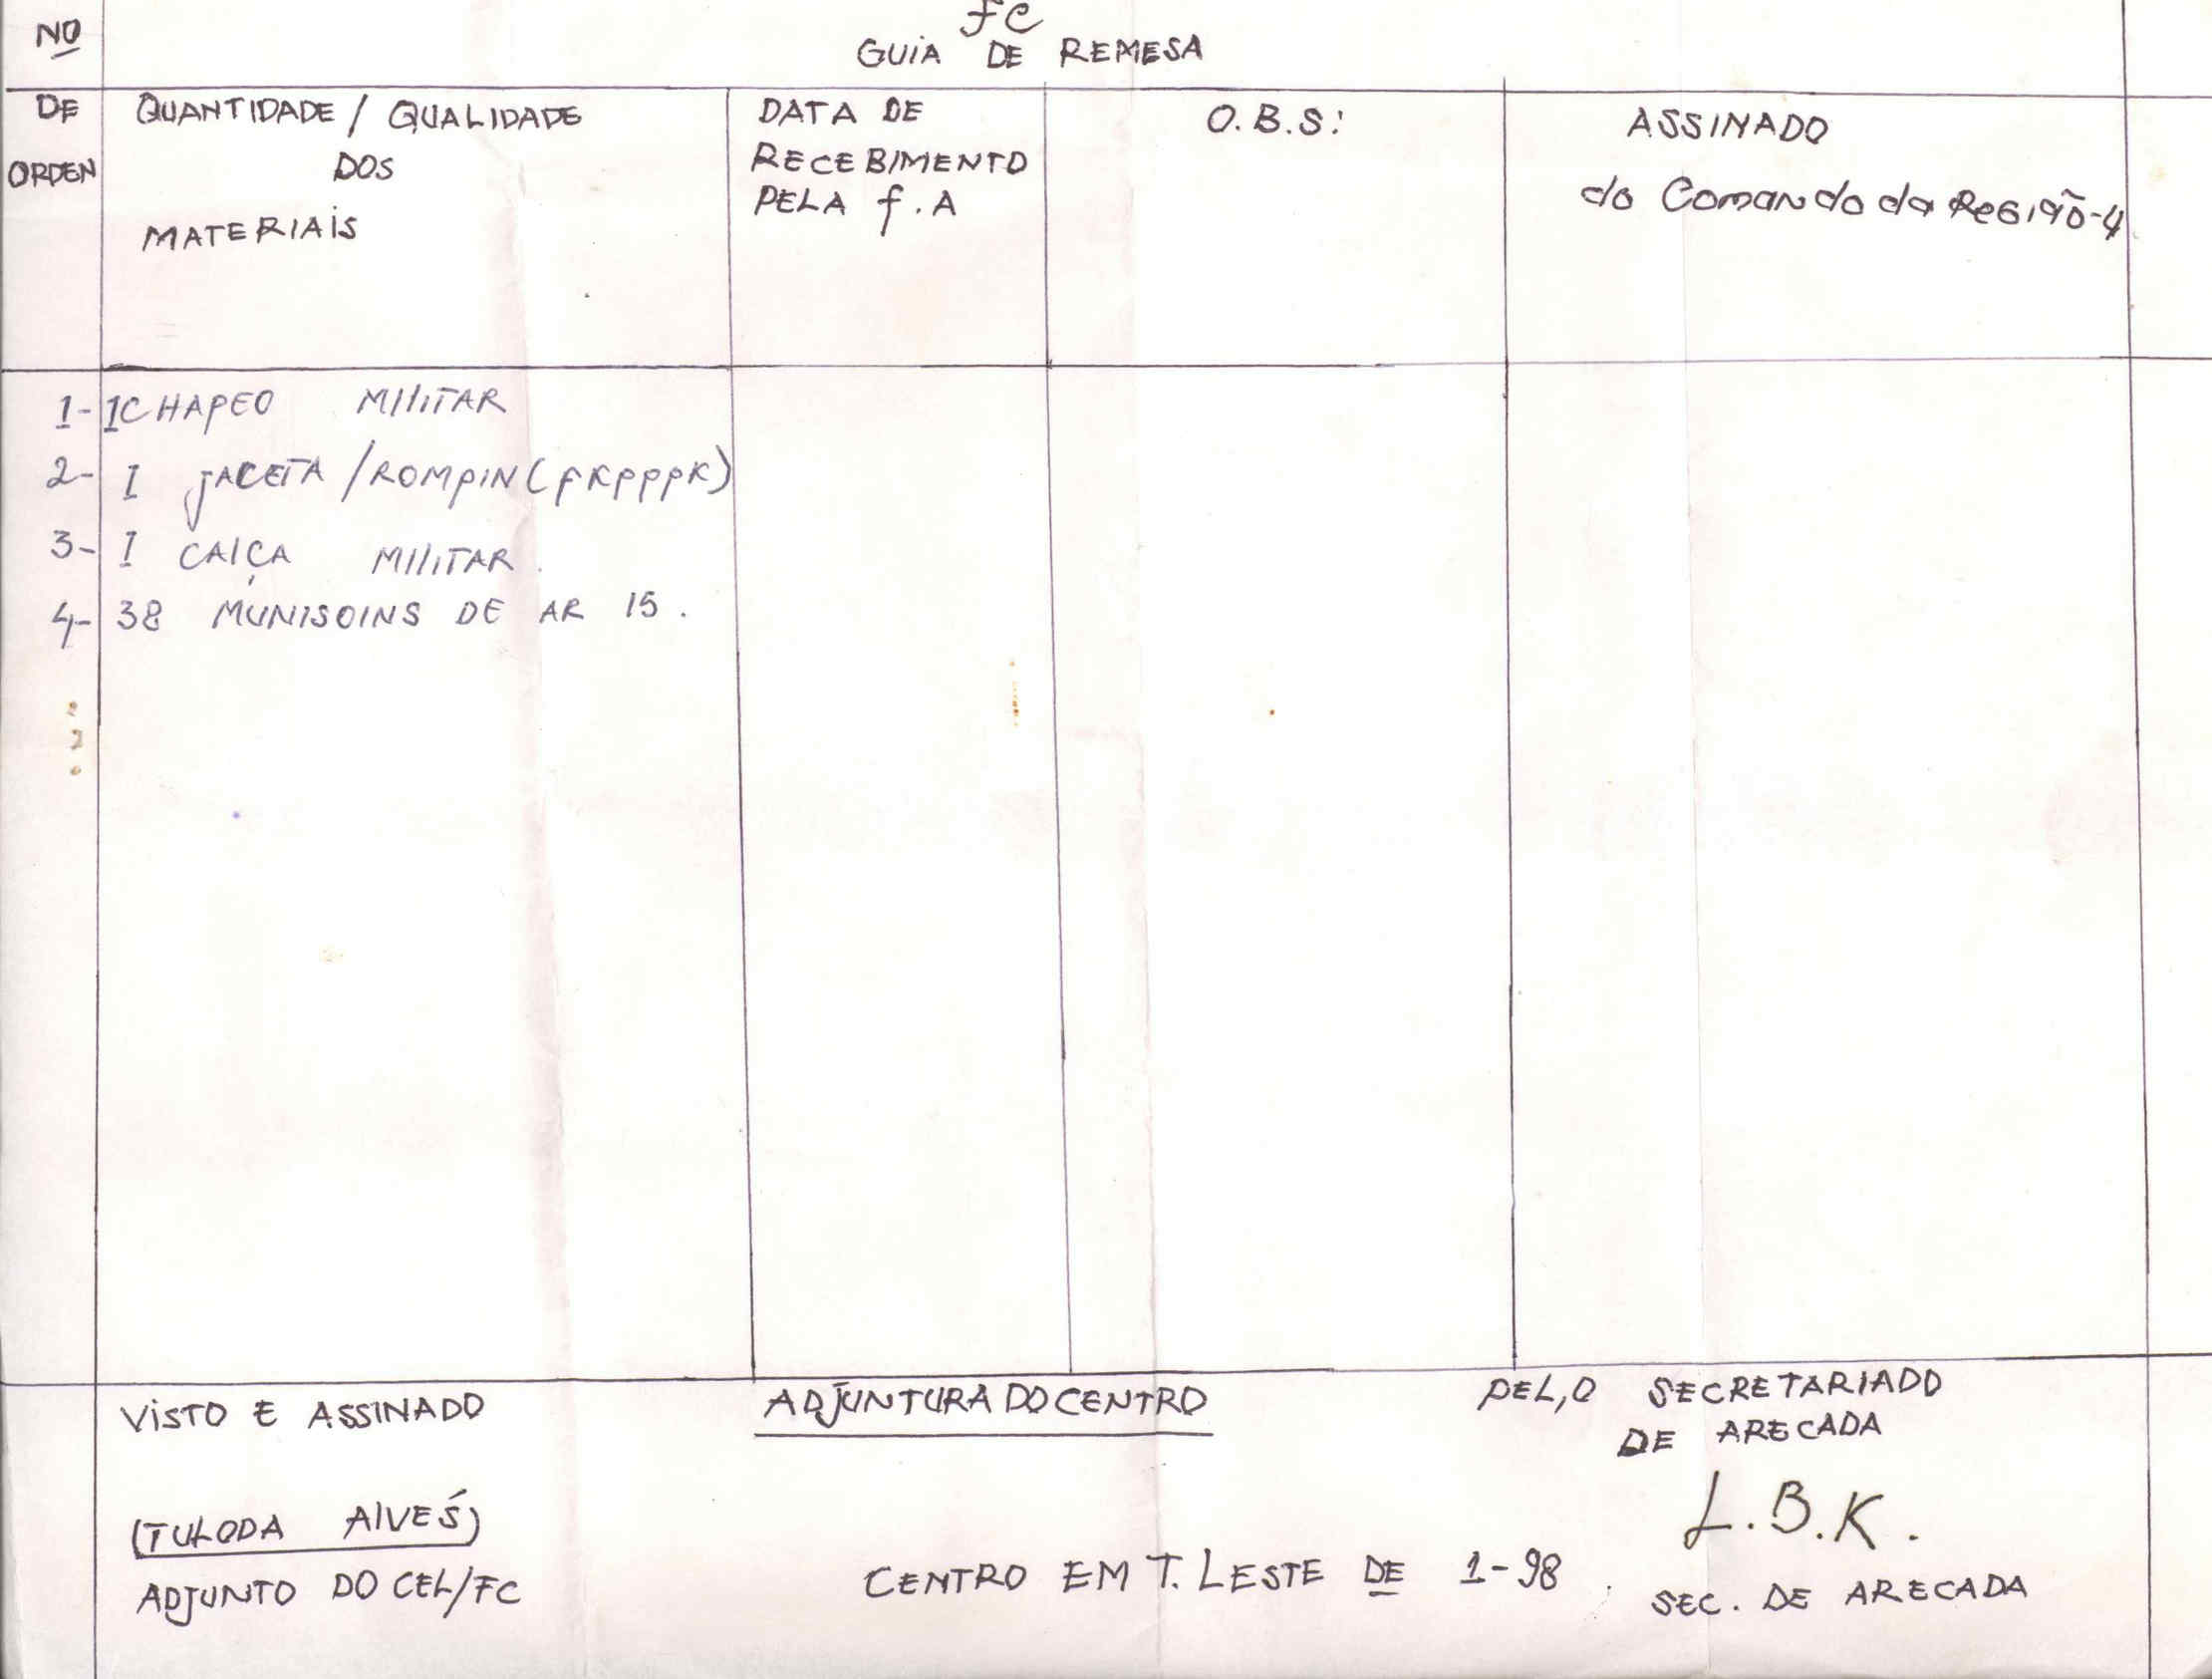 FC
GUIA DE REMESA
Nº
DE
ORDEN
QUANTIDADE / QUALIDADE
DOS
MATERIAIS
DATA DE
RECEBIMENTO
PELA F.A
O.B.S:
ASSINADO
do Comando da Região-4
1- 1 CHAPEO MILITAR
2- 1 JACETA / ROMPIN (PKPPPK)
3- 1 CALÇA MILITAR
4- 38 MUNISOINS DE AR 15.
VISTO E ASSINADO
(TULODA ALVES)
ADJUNTO DO CEL/FC
ADJUNTURA DO CENTRO
CENTRO EM T. LESTE DE 1-98.
PEL,O SECRETARIADO
DE ARECADA
L.B.K.
SEC. DE ARECADA